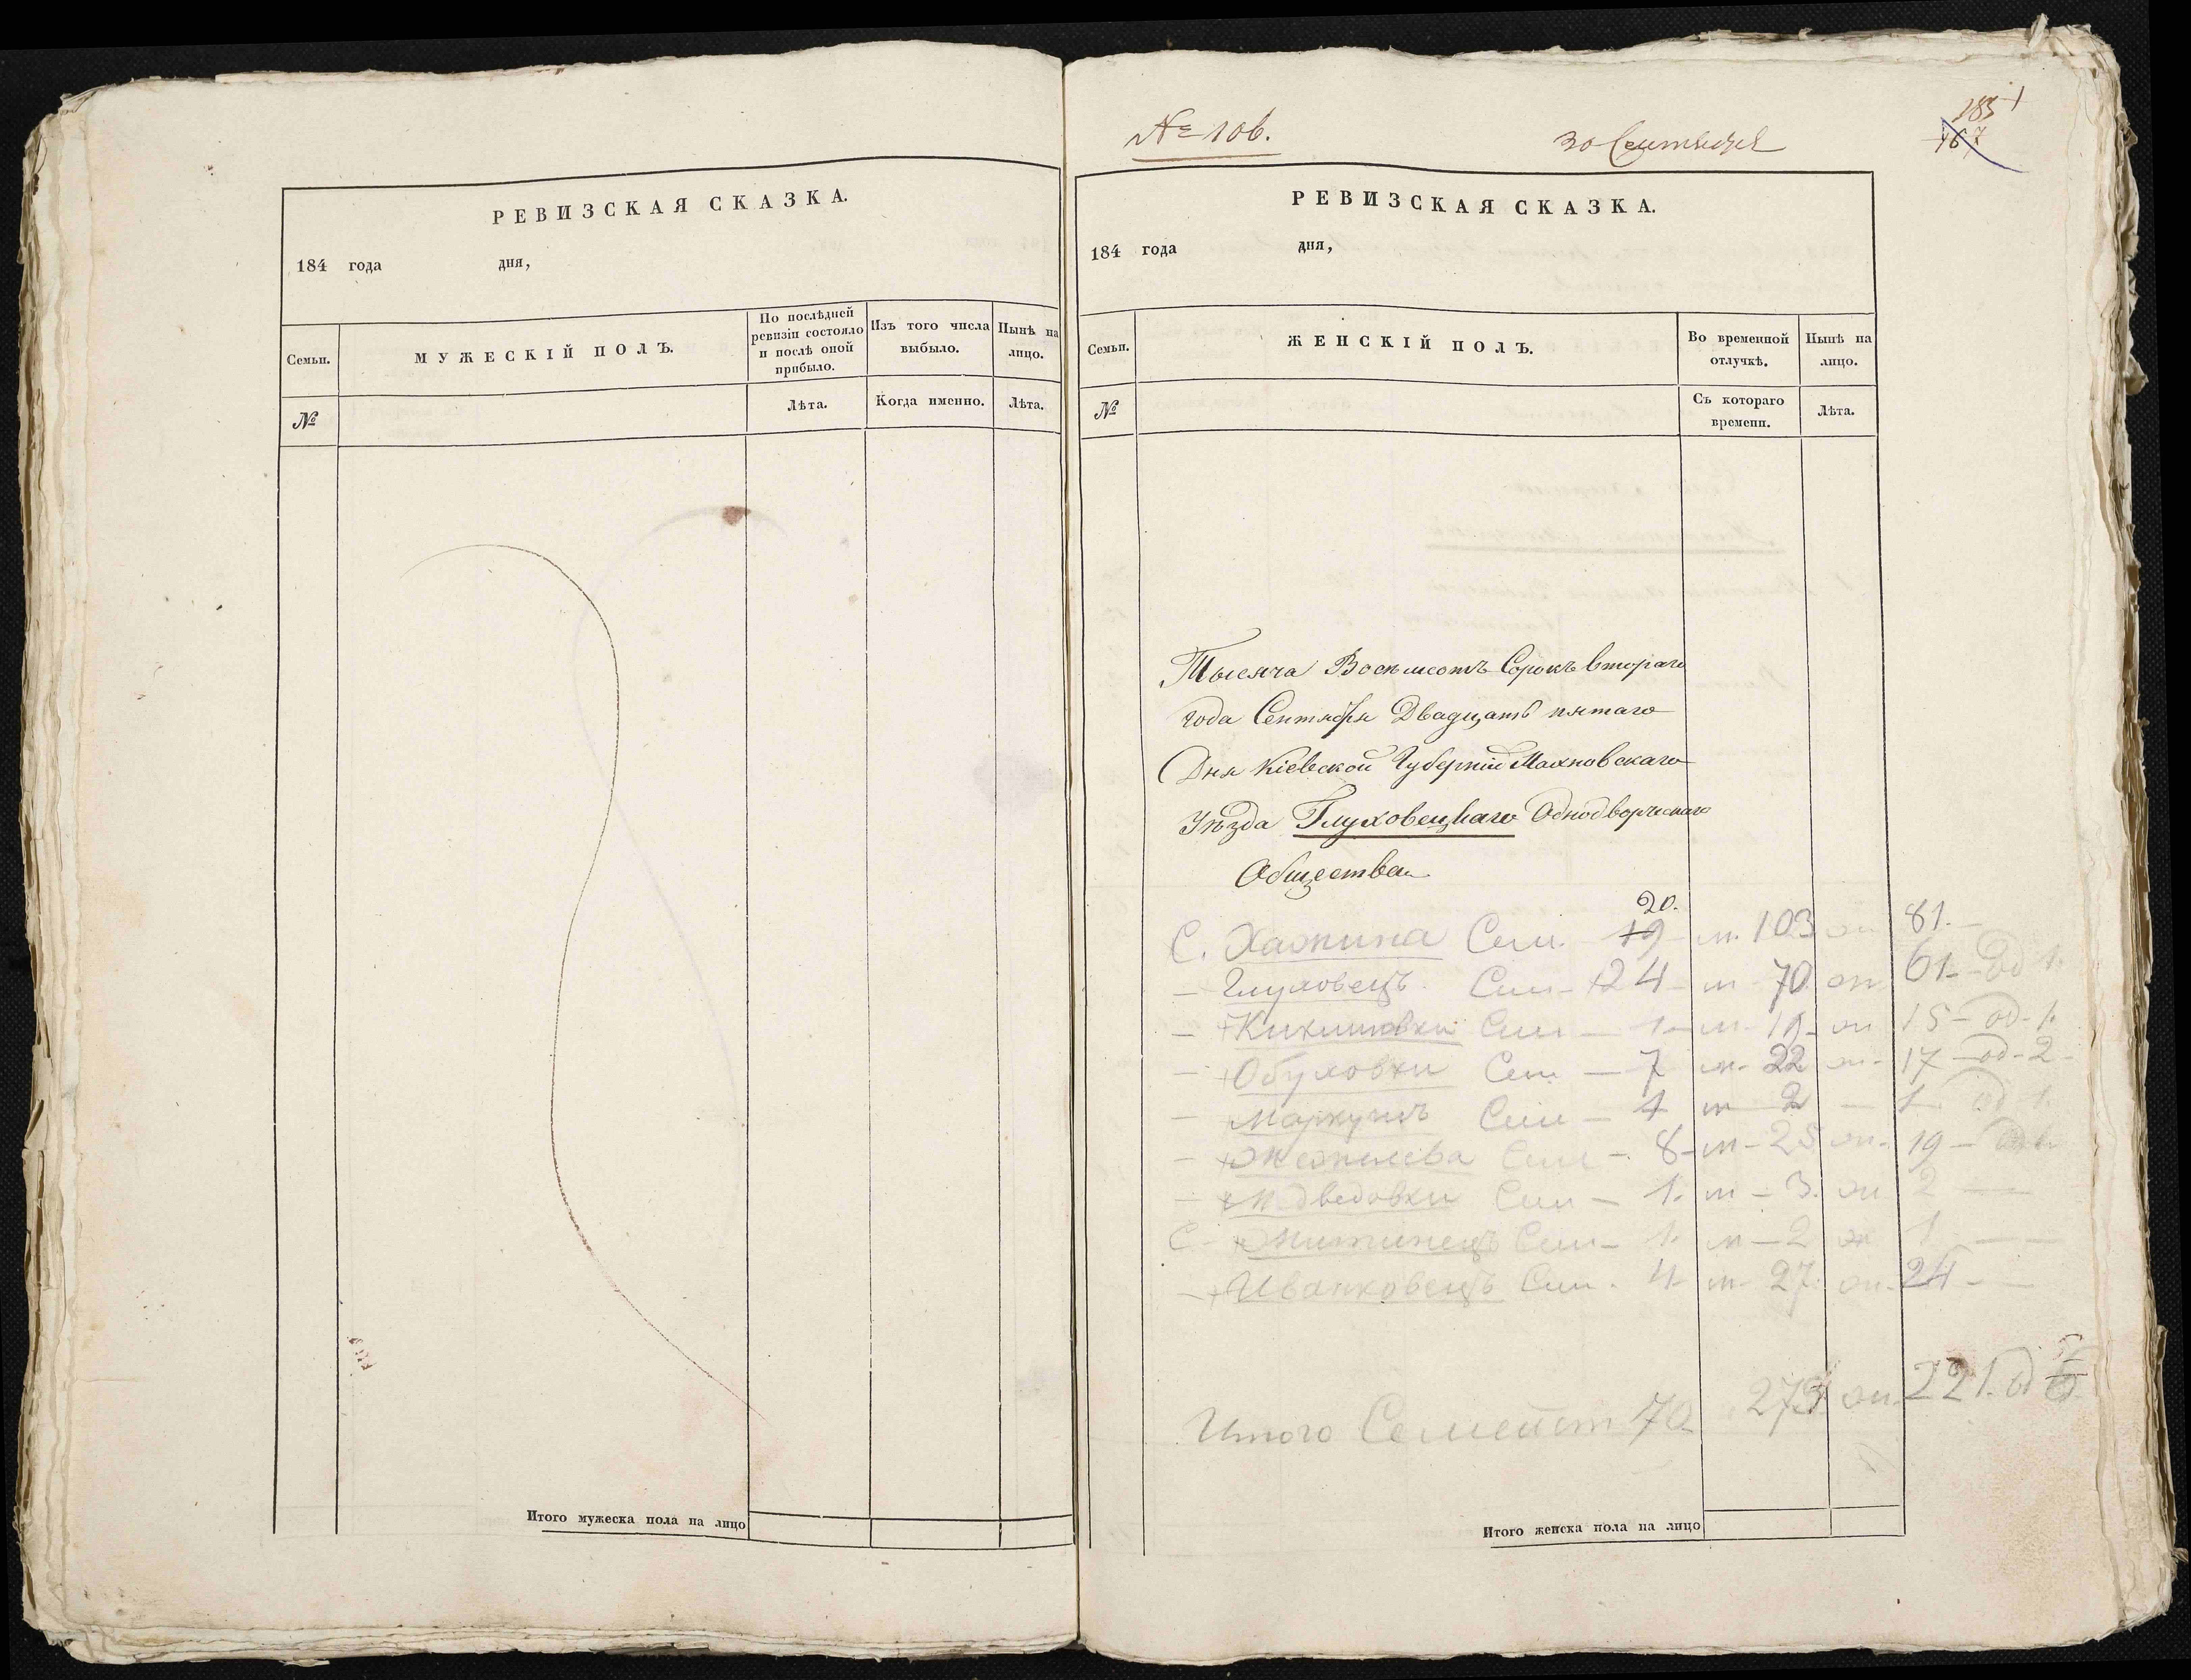 РЕВИЗСКАЯ СКАЗКА.
184 года дня,
Семьи.
МУЖЕСКІЙ ПОЛЪ.
По послѣдней ревизіи состояло и послѣ оной прибыло.
Изъ того числа выбыло.
Нынѣ на лицо.
№
Лѣта.
Когда именно.
Лѣта.
Итого мужеска пола на лицо
№ 106.
30 Сентября
185
167
РЕВИЗСКАЯ СКАЗКА.
184 года дня,
Семьи.
ЖЕНСКІЙ ПОЛЪ.
Во временной отлучкѣ.
Нынѣ на лицо.
№
Съ котораго времени.
Лѣта.
Тысяча Восемсотъ Сорокъ втораго
года Сентября Двадцать пятаго
Дня Кіевской Губерніи Махновскаго
Уѣзда Глуховецкаго Однодворческаго
Общества
20.
С. Хажина Сем. 19 м. 103 ж 81.
— Глуховецъ Сем - 24 - м - 70 ж 61 - од 1.
— Сем — 1 - м - 19 - ж 15 - од - 1.
— Обуховки Сем — 7 м - 22 ж - 17 - од - 2 -
— Маркушъ Сем — 1 м 2 — 1 од 1.
— Жежелева Сем - 8 - м - 25 ж - 19 -
— Сем — 1. м - 3. ж 2 —
С - Житинецъ Сем - 1. м - 2 ж 1 —
— Иванковецъ Сем. 4 м - 27 ж - 24 —
Итого Семейст 70 273 ж 221. од
Итого женска пола на лицо